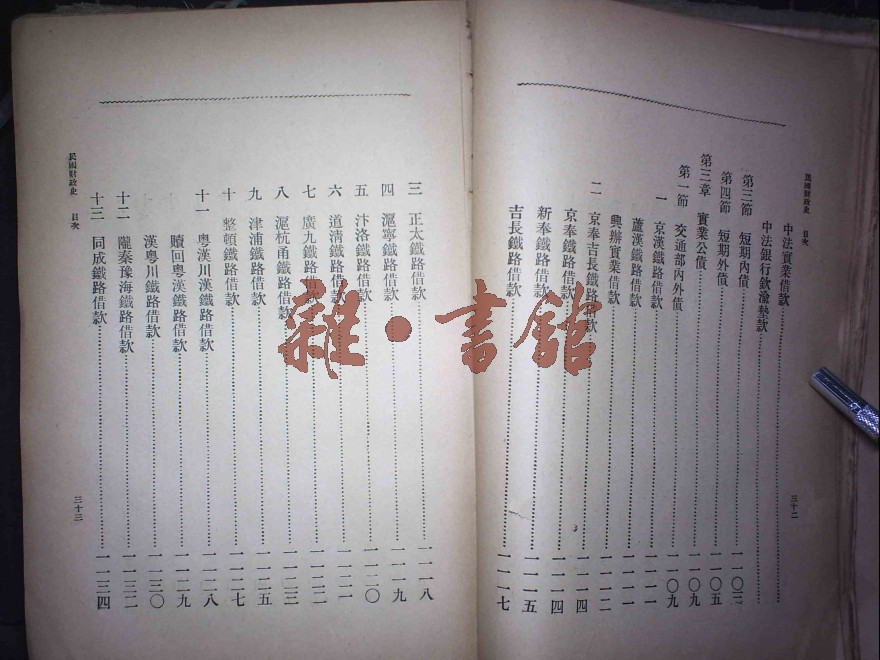 民國財政史 目次 三十二
中法實業借款
中法銀行欽渝墊款
第三節 短期內債 一一〇三
第四節 短期外債 一一〇五
第三章 實業公債 一一〇九
第一節 交通部內外債 一一〇九
一 京漢鐵路借款 一一一一
蘆漢鐵路借款 一一一一
興辦實業借款 一一一二
二 京奉吉長鐵路借款 一一一四
京奉鐵路借款 一一一四
新奉鐵路借款 一一一五
吉長鐵路借款 一一一七
三 正太鐵路借款 一一一八
四 滬寧鐵路借款 一一一九
五 汴洛鐵路借款 一一二〇
六 道淸鐵路借款 一一二一
七 廣九鐵路借款 一一二二
八 滬杭甬鐵路借款 一一二三
九 津浦鐵路借款 一一二五
十 整頓鐵路借款 一一二七
十一 粵漢川漢鐵路借款 一一二八
贖回粵漢鐵路借款 一一二九
漢粵川鐵路借款 一一三〇
十二 隴秦豫海鐵路借款 一一三二
十三 同成鐵路借款 一一三四
民國財政史 目次 三十三
雜·書館